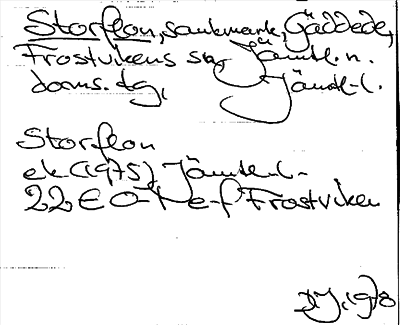 Storflon, sankmark, Gäddede,
Frostvikens sn, Jämtl. n.
doms. tg, Jämtl-l.
Storflon
ek (1975) Jämtl-l-
22E 0-1 e-f Frostviken
1978